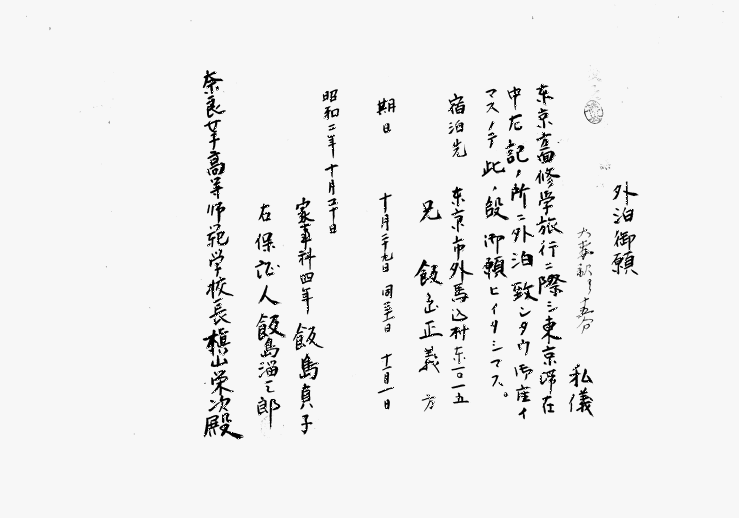 外泊御願
私儀
東京方面修學旅行ニ際シ東京滞在
中左記ノ所ニ外泊致シタウ御座イ
マスノデ此ノ段御願ヒイタシマス。
宿泊先 東京市外馬込村東一〇一五
兄 飯島正義 方
期日 十月二十九日 同三十日 十一月一日
昭和二年十月二十日
家事科四年 飯島貞子
右保證人 飯島
奈良女子高等師範学校長 槇山栄次殿